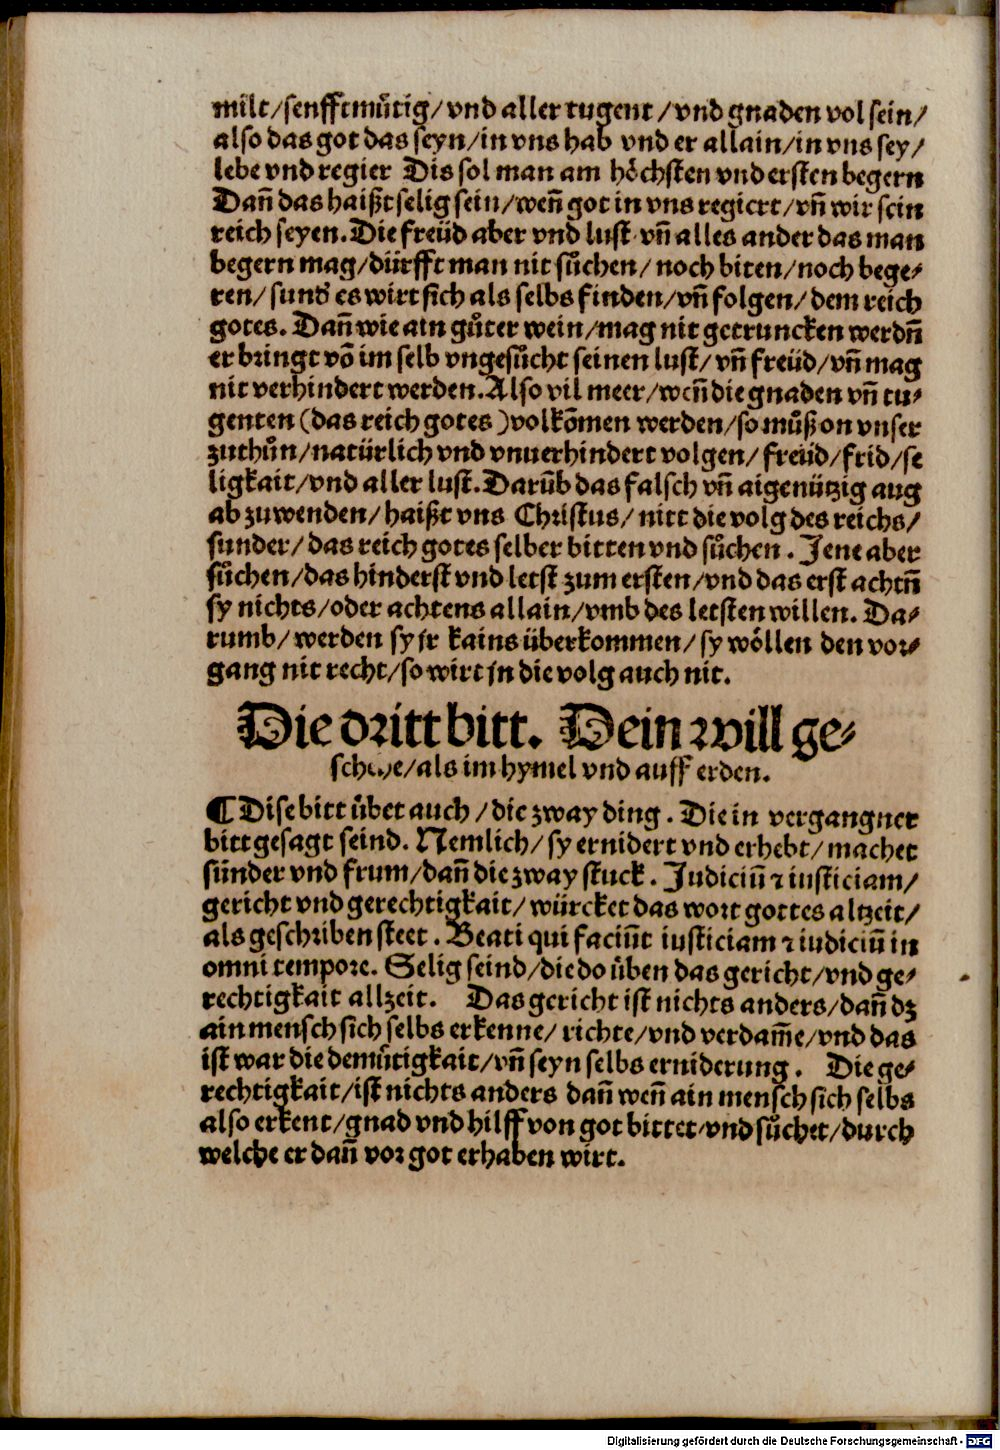 milt/senfftmuͤtig/vnd aller tugent/vnd gnaden vol sein/
also das got das seyn/in vns hab vnd er allain/in vns sey/
lebe vnd regier Dis sol man am hoͤchsten vnd ersten begern
Dañ das haißt selig sein/weñ got in vns regiert/vñ wir sein
reich seyen. Die freüd aber vnd lust vñ alles ander das man
begern mag/dürfft man nit suͤchen/noch biten/noch bege⸗
ren/ es wirt sich als selbs finden/vñ folgen/dem reich
gotes. Dañ wie ain guͦter wein/mag nit getruncken werdñ
er bringt võ im selb vngesuͦcht seinen lust/vñ freüd/vñ mag
nit verhindert werden. Also vil meer/weñ die gnaden vñ tu⸗
genten (das reich gotes) volkõmen werden/so muͦß on vnser
zuthuͦn/natürlich vnd vnuerhindert volgen/freüd/frid/se
ligkait/vnd aller lust. Darũb das falsch vñ aigenützig aug
ab zuwenden/haißt vns Christus/nitt die volg des reichs/
sunder/das reich gotes selber bitten vnd suͦchen. Jene aber
suͦchen/das hinderst vnd letst zum ersten/vnd das erst achtñ
sy nichts/oder achtens allain/vmb des letsten willen. Da⸗
rumb/werden sy jr kains überkommen/sy woͤllen den vor⸗
gang nit recht/so wirt jn die volg auch nit.
Die dritt bitt. Dein will ge⸗
schehe/als im hymel vnd auff erden.
¶ Dise bitt uͤbet auch/die zway ding. Die in vergangner
bitt gesagt seind. Nemlich/sy ernidert vnd erhebt/machet
sünder vnd frum/dañ die zway stuck. Judiciũ ⁊ iusticiam/
gericht vnd gerechtigkait/würcket das wort gottes altzeit/
als geschriben steet. Beati qui faciũt iusticiam ⁊ iudiciũ in
omni tempore. Selig seind/die do uͤben das gericht/vnd ge⸗
rechtigkait allzeit. Das gericht ist nichts anders/dañ dz
ain mensch sich selbs erkenne/richte/vnd verdam̃e/vnd das
ist war die demuͤtigkait/vñ seyn selbs erniderung. Die ge⸗
rechtigkait/ist nichts anders dañ weñ ain mensch sich selbs
also erkent/gnad vnd hilff von got bittet/vnd suͦchet/durch
welche er dañ vor got erhaben wirt.
Digitalisierung gefördert durch die Deutsche Forschungsgemeinschaft - DFG